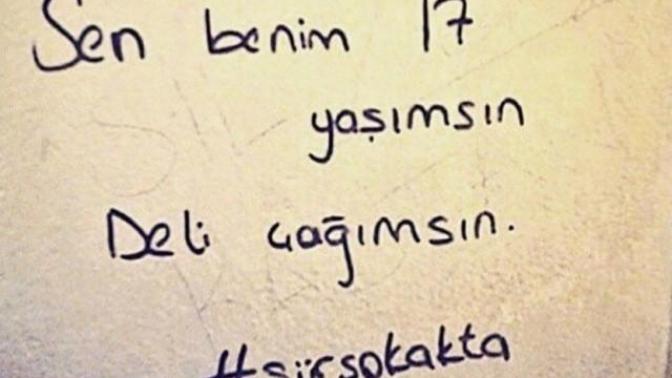 Sen benim 17
yaşımsın
Deli çağımsın.
#şiirsokakta